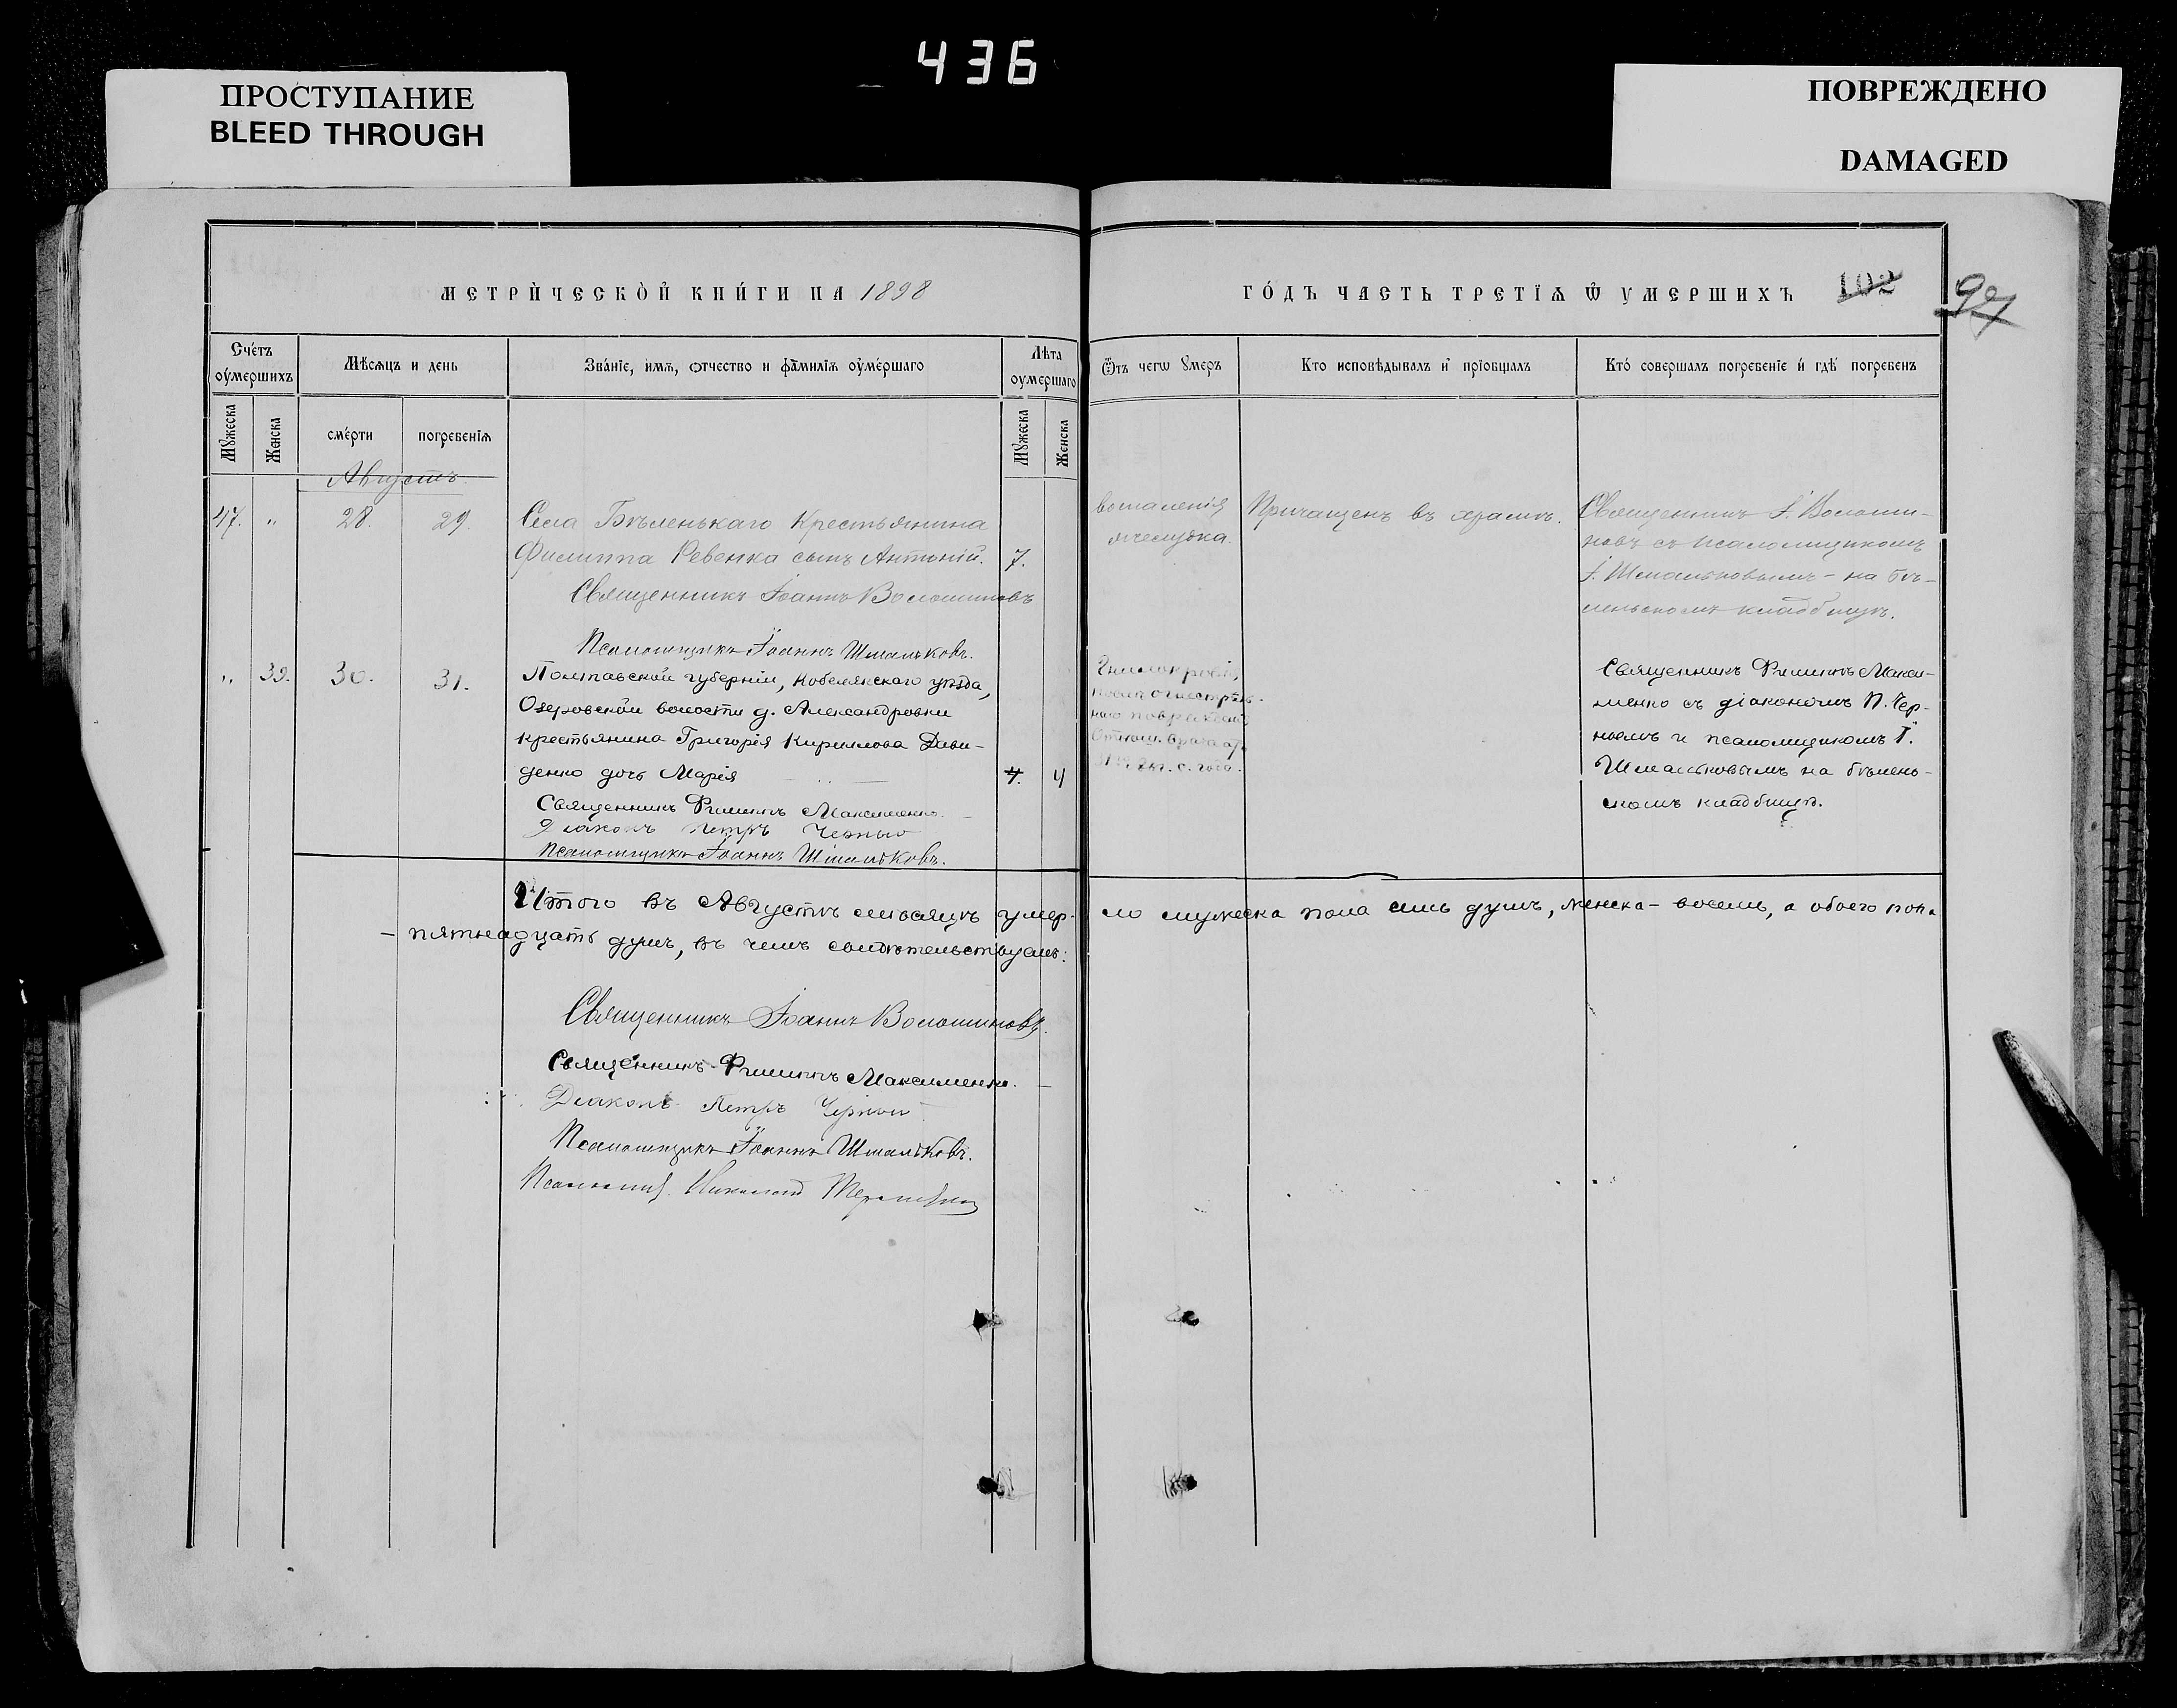 436
ПРОСТУПАНИЕ
BLEED THROUGH
ПОВРЕЖДЕНО
DAMAGED
МЕТРИ́ЧЕСКО́Й КНИ́ГИ НА 1898
ГО́ДЪ ЧАСТЬ ТРЕТІѦ Ѿ УМЕРШИХЪ 102
Сче́тъ оу҆ме́ршихъ
Мѣсѧцъ и день
Зва́нїе, и҆мѧ, отчество и фамилїѧ оу҆ме́ршаго
Лѣта оумершаго
Ѿтъ чегѡ Ꙋмеръ
Кто исповѣдывалъ и҆ прїобщалъ
Кто́ совершалъ погребенїе и҆ гдѣ́ погребенъ
Мꙋжеска
Женска
сме́рти
погребенїѧ
Мꙋжеска
Женска
Августъ
47. " 28. 29.
Села Бѣленькаго Крестьянина
Филиппа Ревенка сынъ Антоній. 7.
Священникъ Іоаннъ Волошиновъ
Псаломщикъ Іоаннъ Шмальковъ.
воспаленія
желудка.
Причащенъ въ храмѣ.
Священникъ І. Волоши-
новъ съ псаломщикомъ
І. Шмальковымъ - на бѣ-
леньскомъ кладбищѣ.
" 39. 30. 31.
Полтавской губерніи, Кобелякскаго уѣзда,
Озеровской волости д. Александровки
крестьянина Григорія Кириллова Дави-
денко дочь Марія 7. 4
Священникъ Филиппъ Максименко.
Діаконъ Петръ Черный
Псаломщикъ Іоаннъ Шмальковъ.
Гнилокровія,
послѣ огнестрѣль-
наго поврежденія
Отнош. врача
с. года.
Священникъ Филиппъ Макси-
менко съ діакономъ П. Чер-
нымъ и псаломщикомъ І.
Шмальковымъ на бѣлень-
скомъ кладбищѣ.
Итого въ Августѣ мѣсяцѣ умер-
ло мужеска пола семь душъ, женска - восемь, а обоего пола
- пятнадцать душъ, въ чемъ свидѣтельствуемъ:
Священникъ Іоаннъ Волошиновъ.
Священникъ Филиппъ Максименко.
Діаконъ Петръ Черный
Псаломщикъ Іоаннъ Шмальковъ.
Псаломщ. Николай